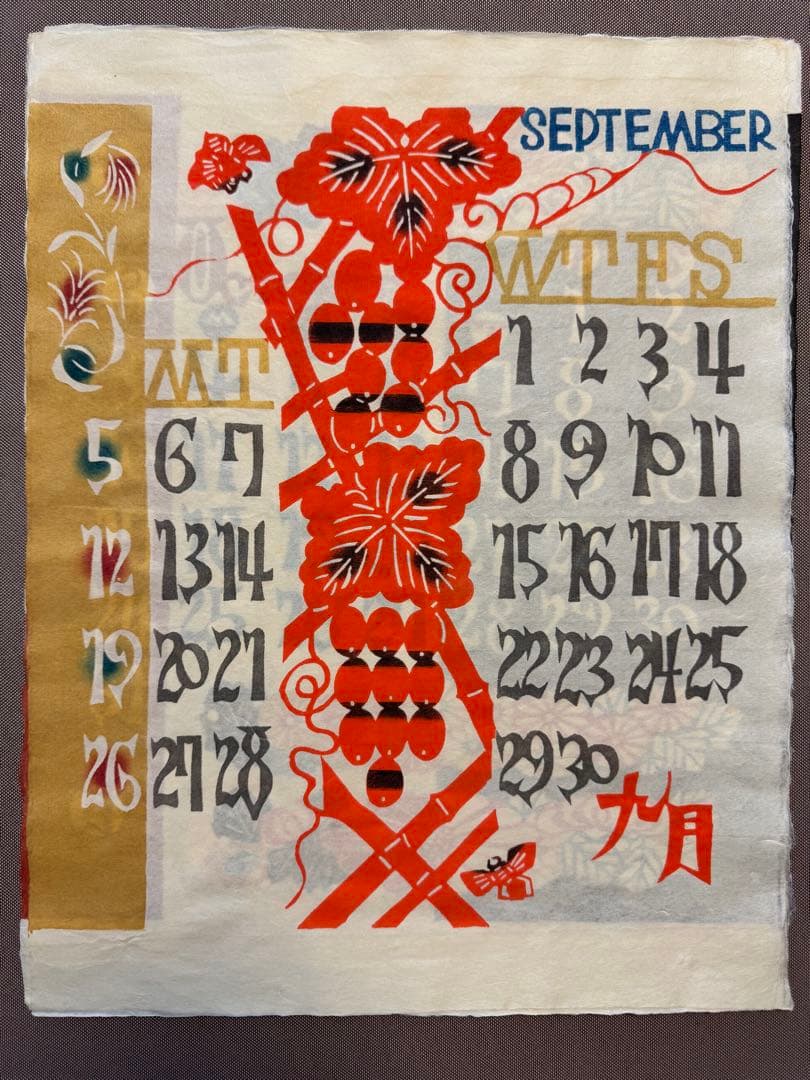 SEPTEMBER
S
M T
W T F S
1 2 3 4
5 6 7 8 9 10 11
12 13 14 15 16 17 18
19 20 21 22 23 24 25
26 27 28 29 30
九月